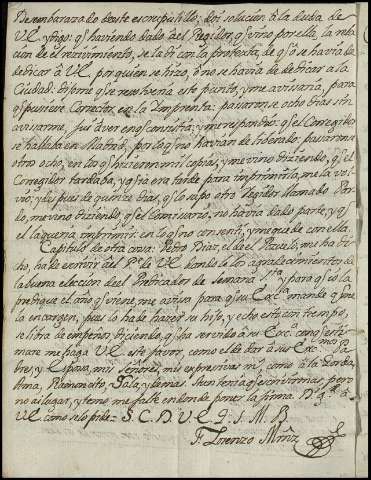 Desembarazado de este escrupulillo, doi solucion â la duda de
VE. y digo: q.e haviendo dado a el Regidor, q.e vino por ella, la rela
cion de el recivimiento, se la di con la protexta, de q.e se havia de
dedicar â VE. por quien se hizo, ô no se havia de dedicar a la
Ciudad: dijome q.e se resolveria este punto, y me avisaria, para
q.e pusiese Corrector en la Imprenta; pasaronse ocho dias sin
avisarme, fui â ver en q.e consistia; y me respondiô q.e el Corregidor
se hallaba en Madrid, por lo q.e no havian de liberado: pasaronse
otros ocho, en los q.e hicieron mil copias, y me vino diziendo, q.e el
Corregidor tardaba, y q.e ya era tarde para imprimirla, me la vol
viô, y despues de quinze dias, q.e lo supo otro Regidor llamado Par
do, me vino diziendo, q.e el Comisario, no havia dado parte, y q.e
el la queria imprimir. en lo q.e no consenti, y me quede con ella.
Capitulo de otra cosa: Pedro Diaz, el de el me ha di
cho, ha de escrivir a el P.e de VE. dando a los agradecimientos de
la buena eleccion de el Predicador de Semana S.ta y para q.e io la
predique el año q.e viene, me avisa para q.e su Exc.a mande q.e me
la encargen, pues lo ha de hazer su hijo, y echo esto con tiempo,
se libra de empeños, diziendo, q.e ha servido â su Exc.a con q.e esti
marè me haga VE. este favor, como el de dar â sus Exc.mos Pa
dres, y Esposa, mis Señores, mis expresivas m.s como â la Gorda,
Ama, Ramoncito, y demas. Aun tenia q.e escrivir mas, pero
no ai lugar, y temo me falte en donde poner la firma. D. g.e â
VE. como se lo pide= S. C. D. V. E. Q. S. M. B.
F. Lorenzo Muñiz